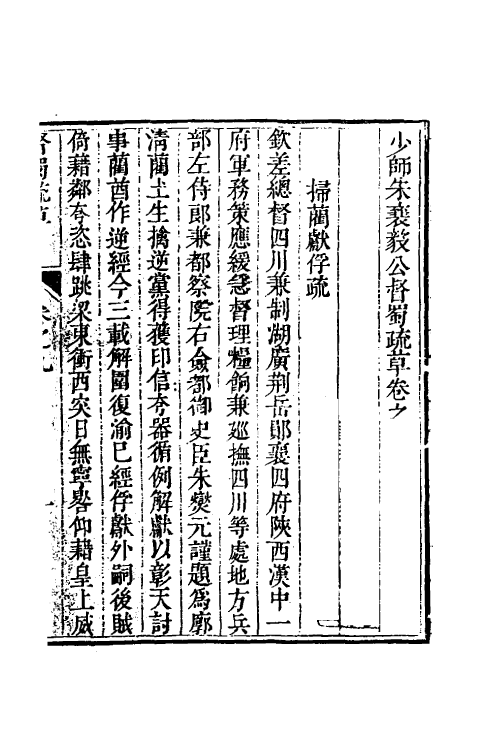 少師朱襄毅公督蜀疏草卷之
掃藺獻俘疏
欽差總督四川兼制湖廣荆岳鄖襄四府陝西漢中一
府軍務策應緩急督理糧餉兼廵撫四川等處地方兵
部左侍郎兼都察院右僉都御史臣朱燮元謹題爲廓
清藺土生擒逆黨得獲印信夸器循例解獻以彰天討
事藺酋作逆經今三載解圍復渝巳經俘獻外嗣後賊
倚藉鄰夸恣肆跳梁東衝西突日無寧晷仰藉皇上威
督蜀疏草